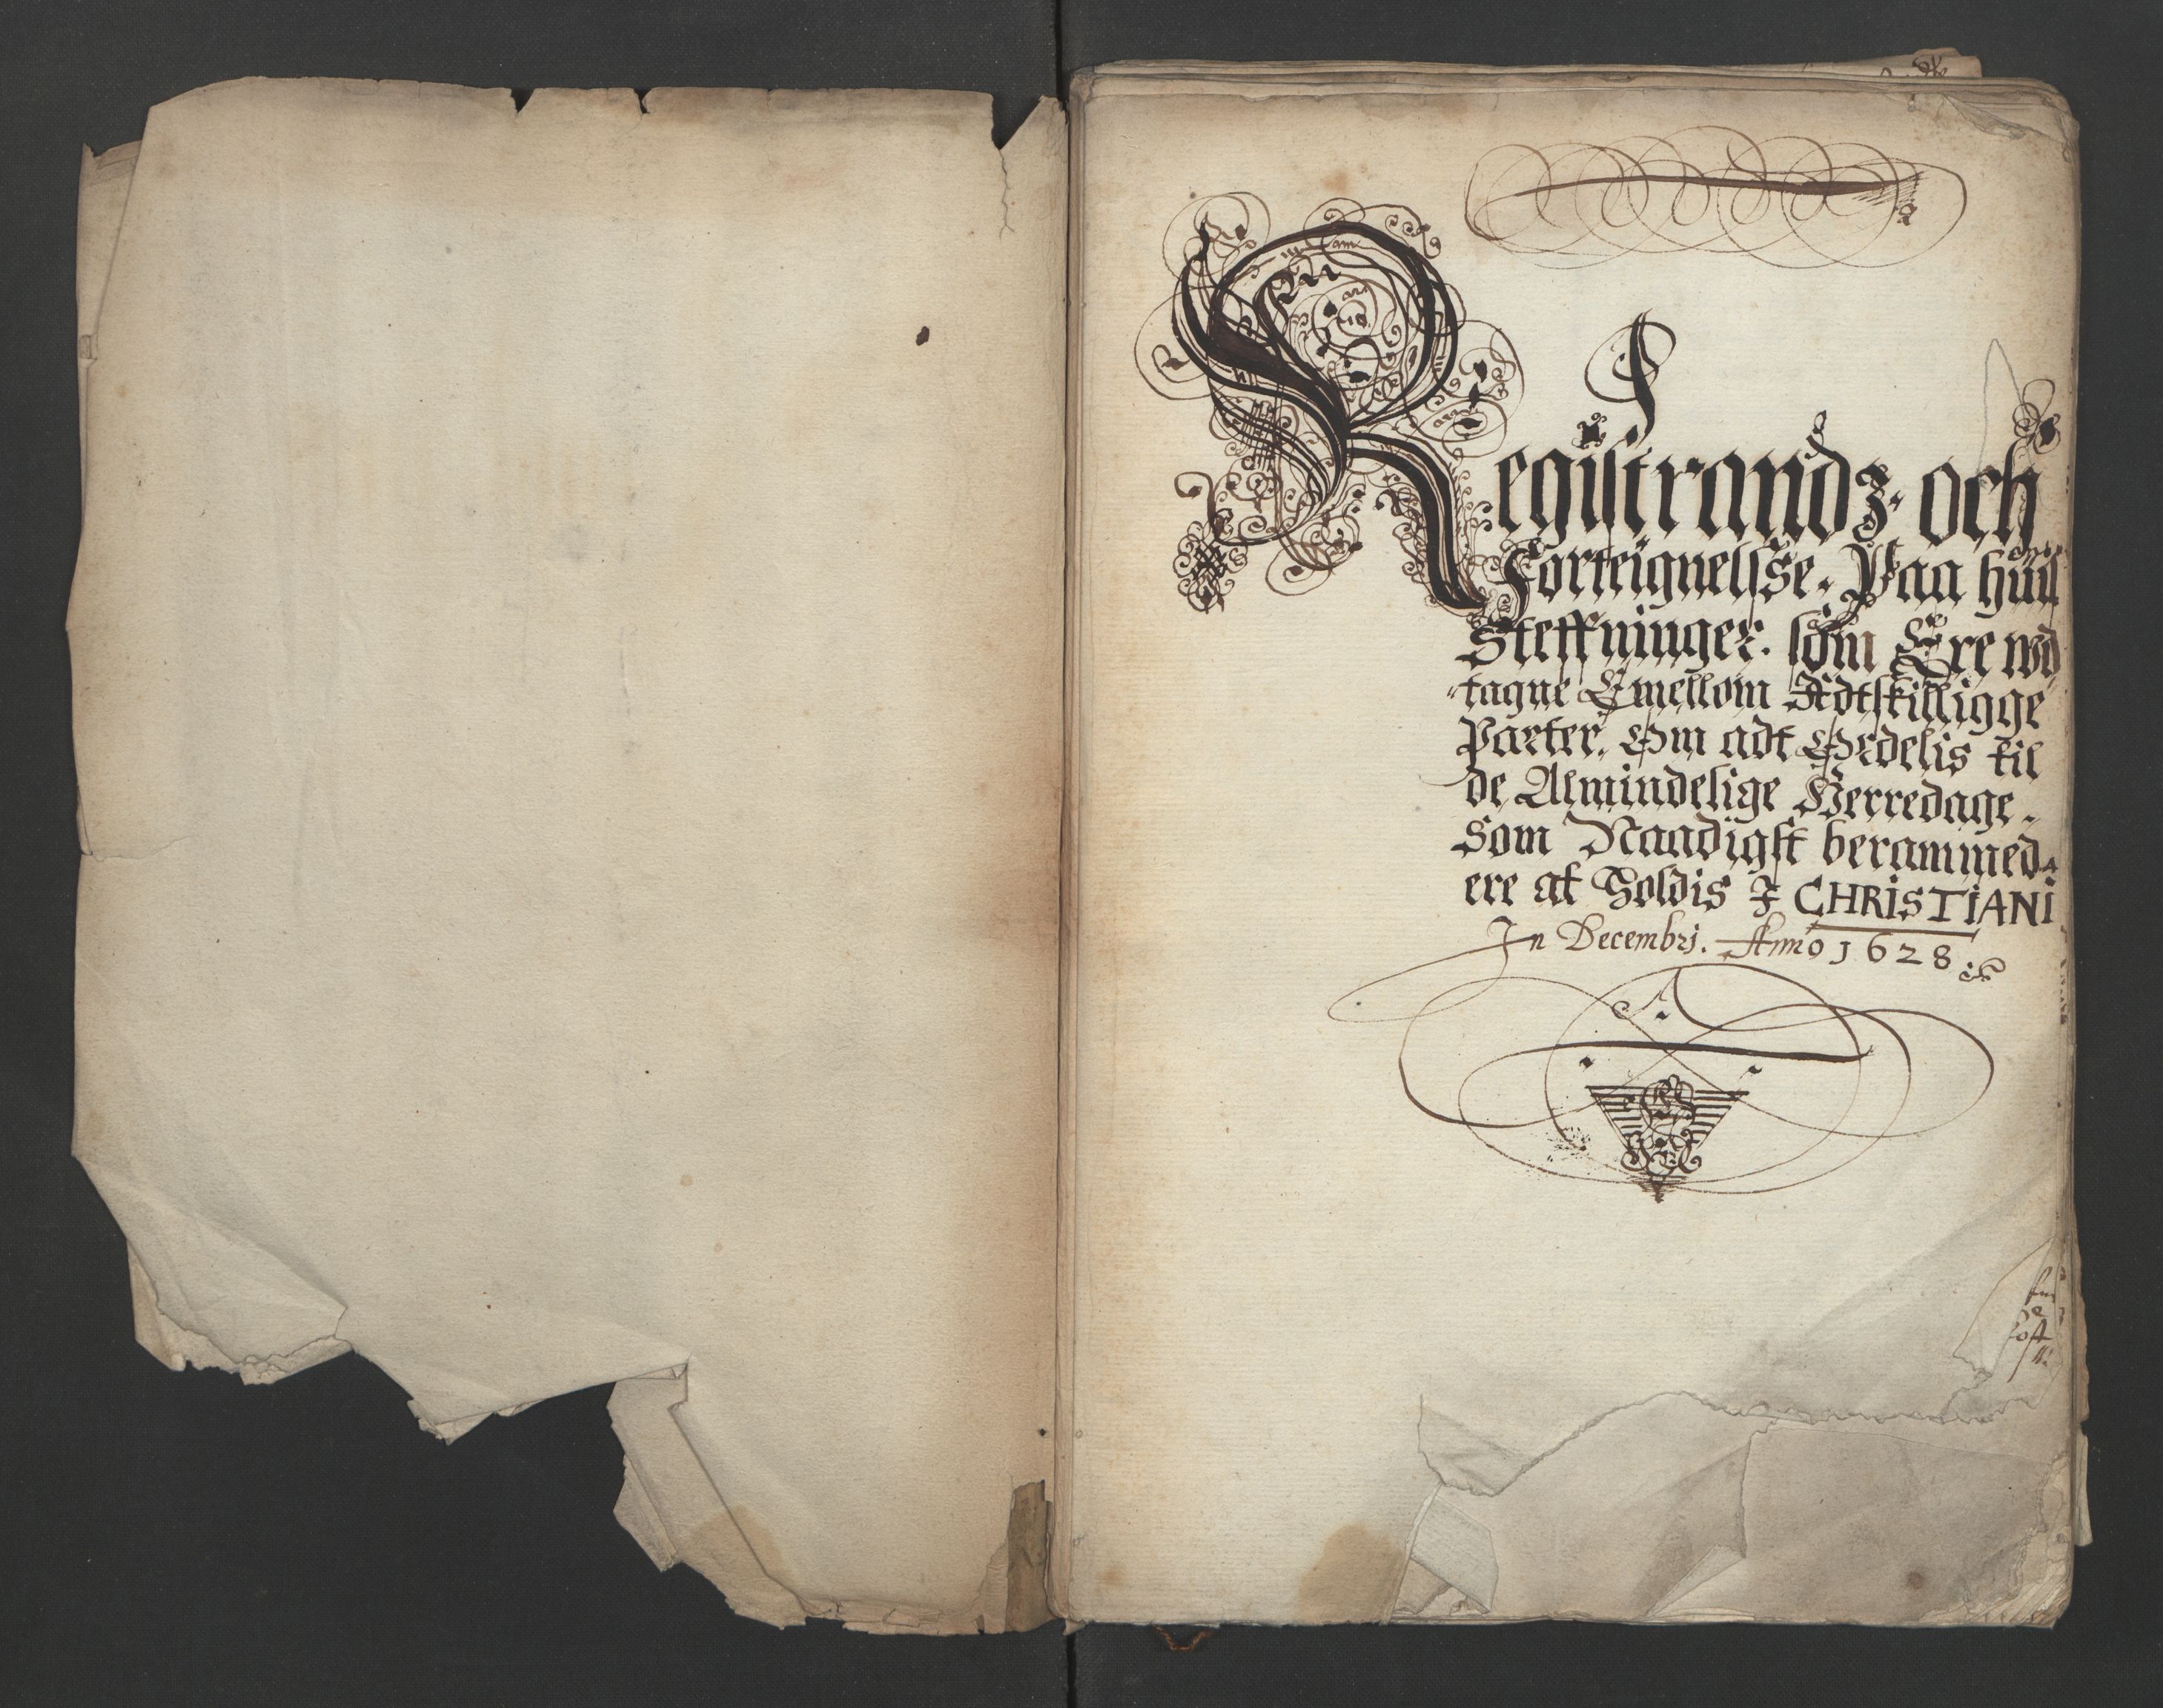 Registrandz och
Forteignelsse. Paa huis
Steffninger. som Ere wd
tagne Emellom Adtskilligge
Parter. Om adt Ordelis til
de Almindelige Herredage.
Som Naadigst berammed
ere at Holdis I CHRISTIANIA
In Decembri. Anno 1628